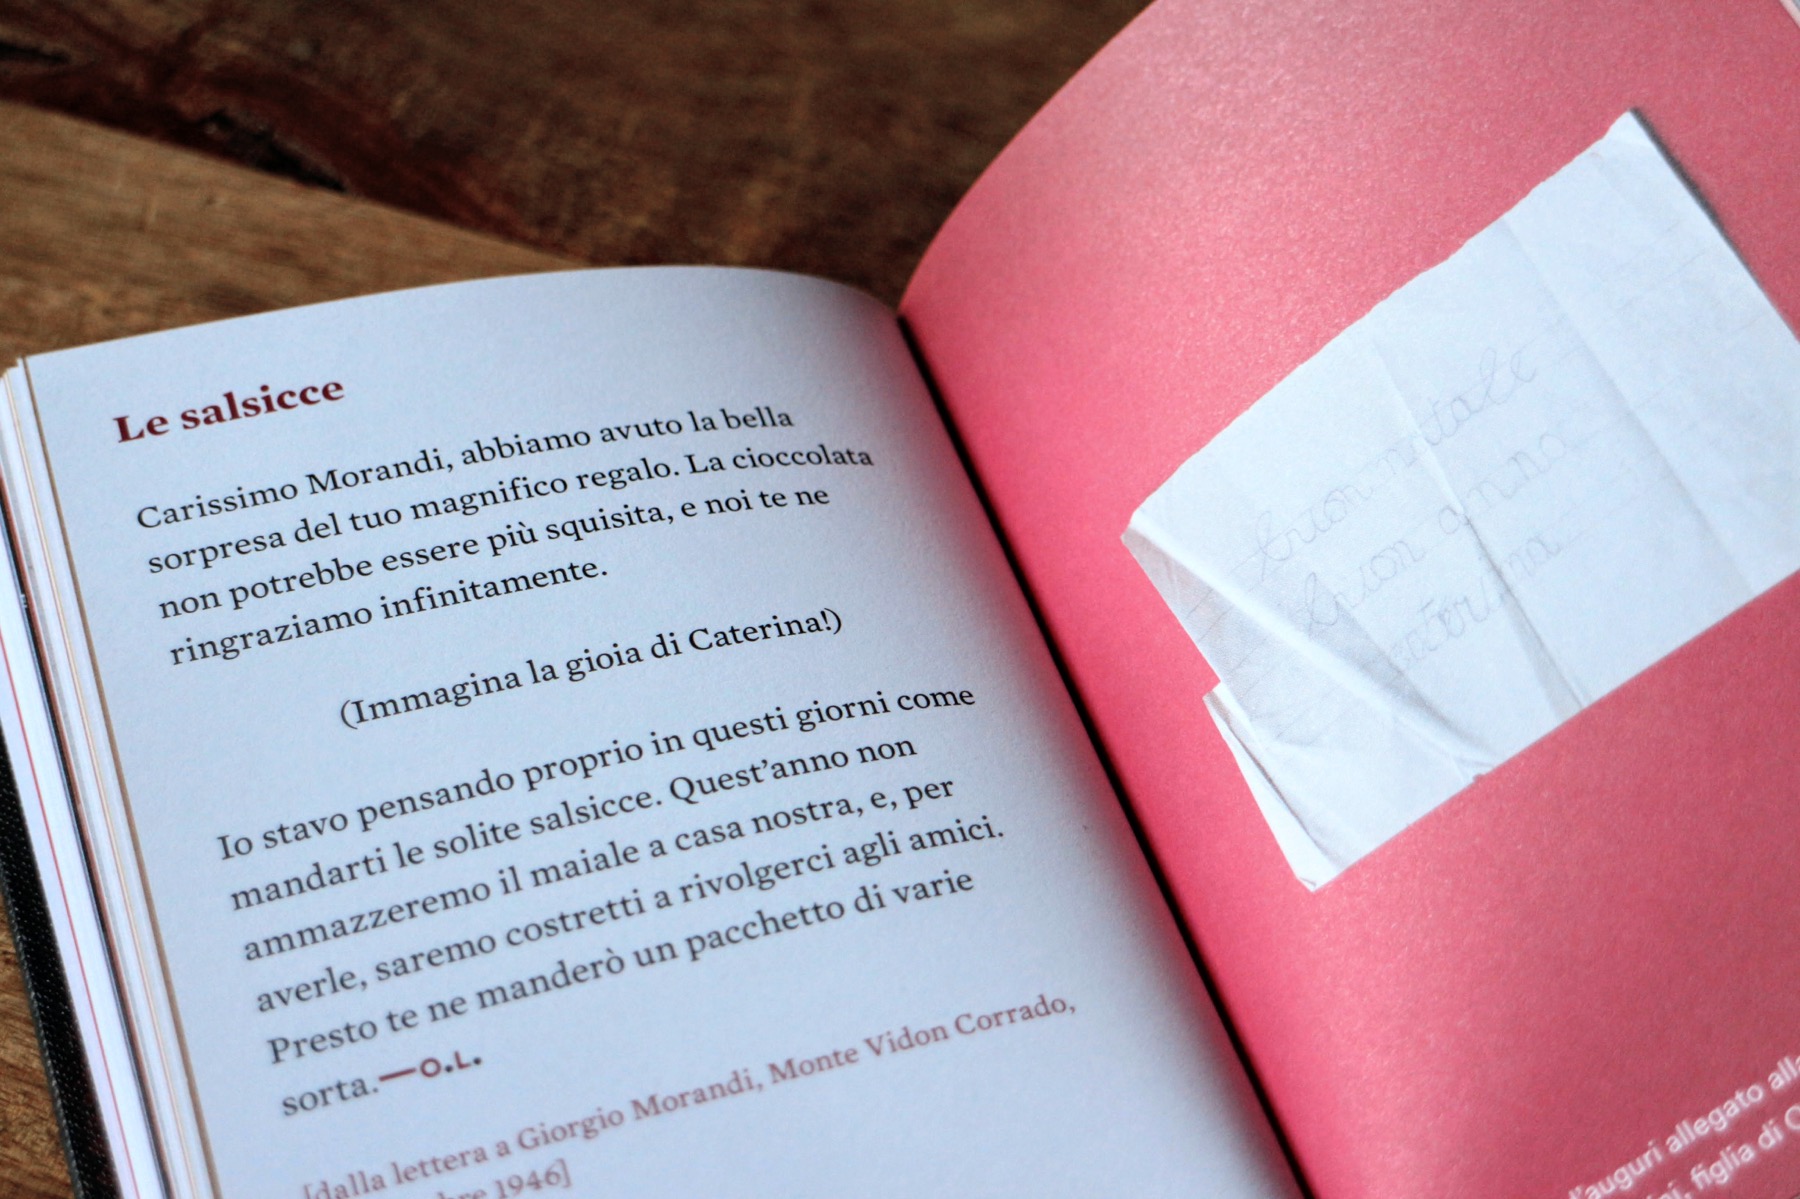 Le salsicce
Carissimo Morandi, abbiamo avuto la bella
sorpresa del tuo magnifico regalo. La cioccolata
non potrebbe essere più squisita, e noi te ne
ringraziamo infinitamente.
(Immagina la gioia di Caterina!)
Io stavo pensando proprio in questi giorni come
mandarti le solite salsicce. Quest’anno non
ammazzeremo il maiale a casa nostra, e, per
averle, saremo costretti a rivolgerci agli amici.
Presto te ne manderò un pacchetto di varie
sorta.—O.L.
[dalla lettera a Giorgio Morandi, Monte Vidon Corrado,
1946]
buon natale
buon anno
caterina
d'auguri allegato alla
figlia di